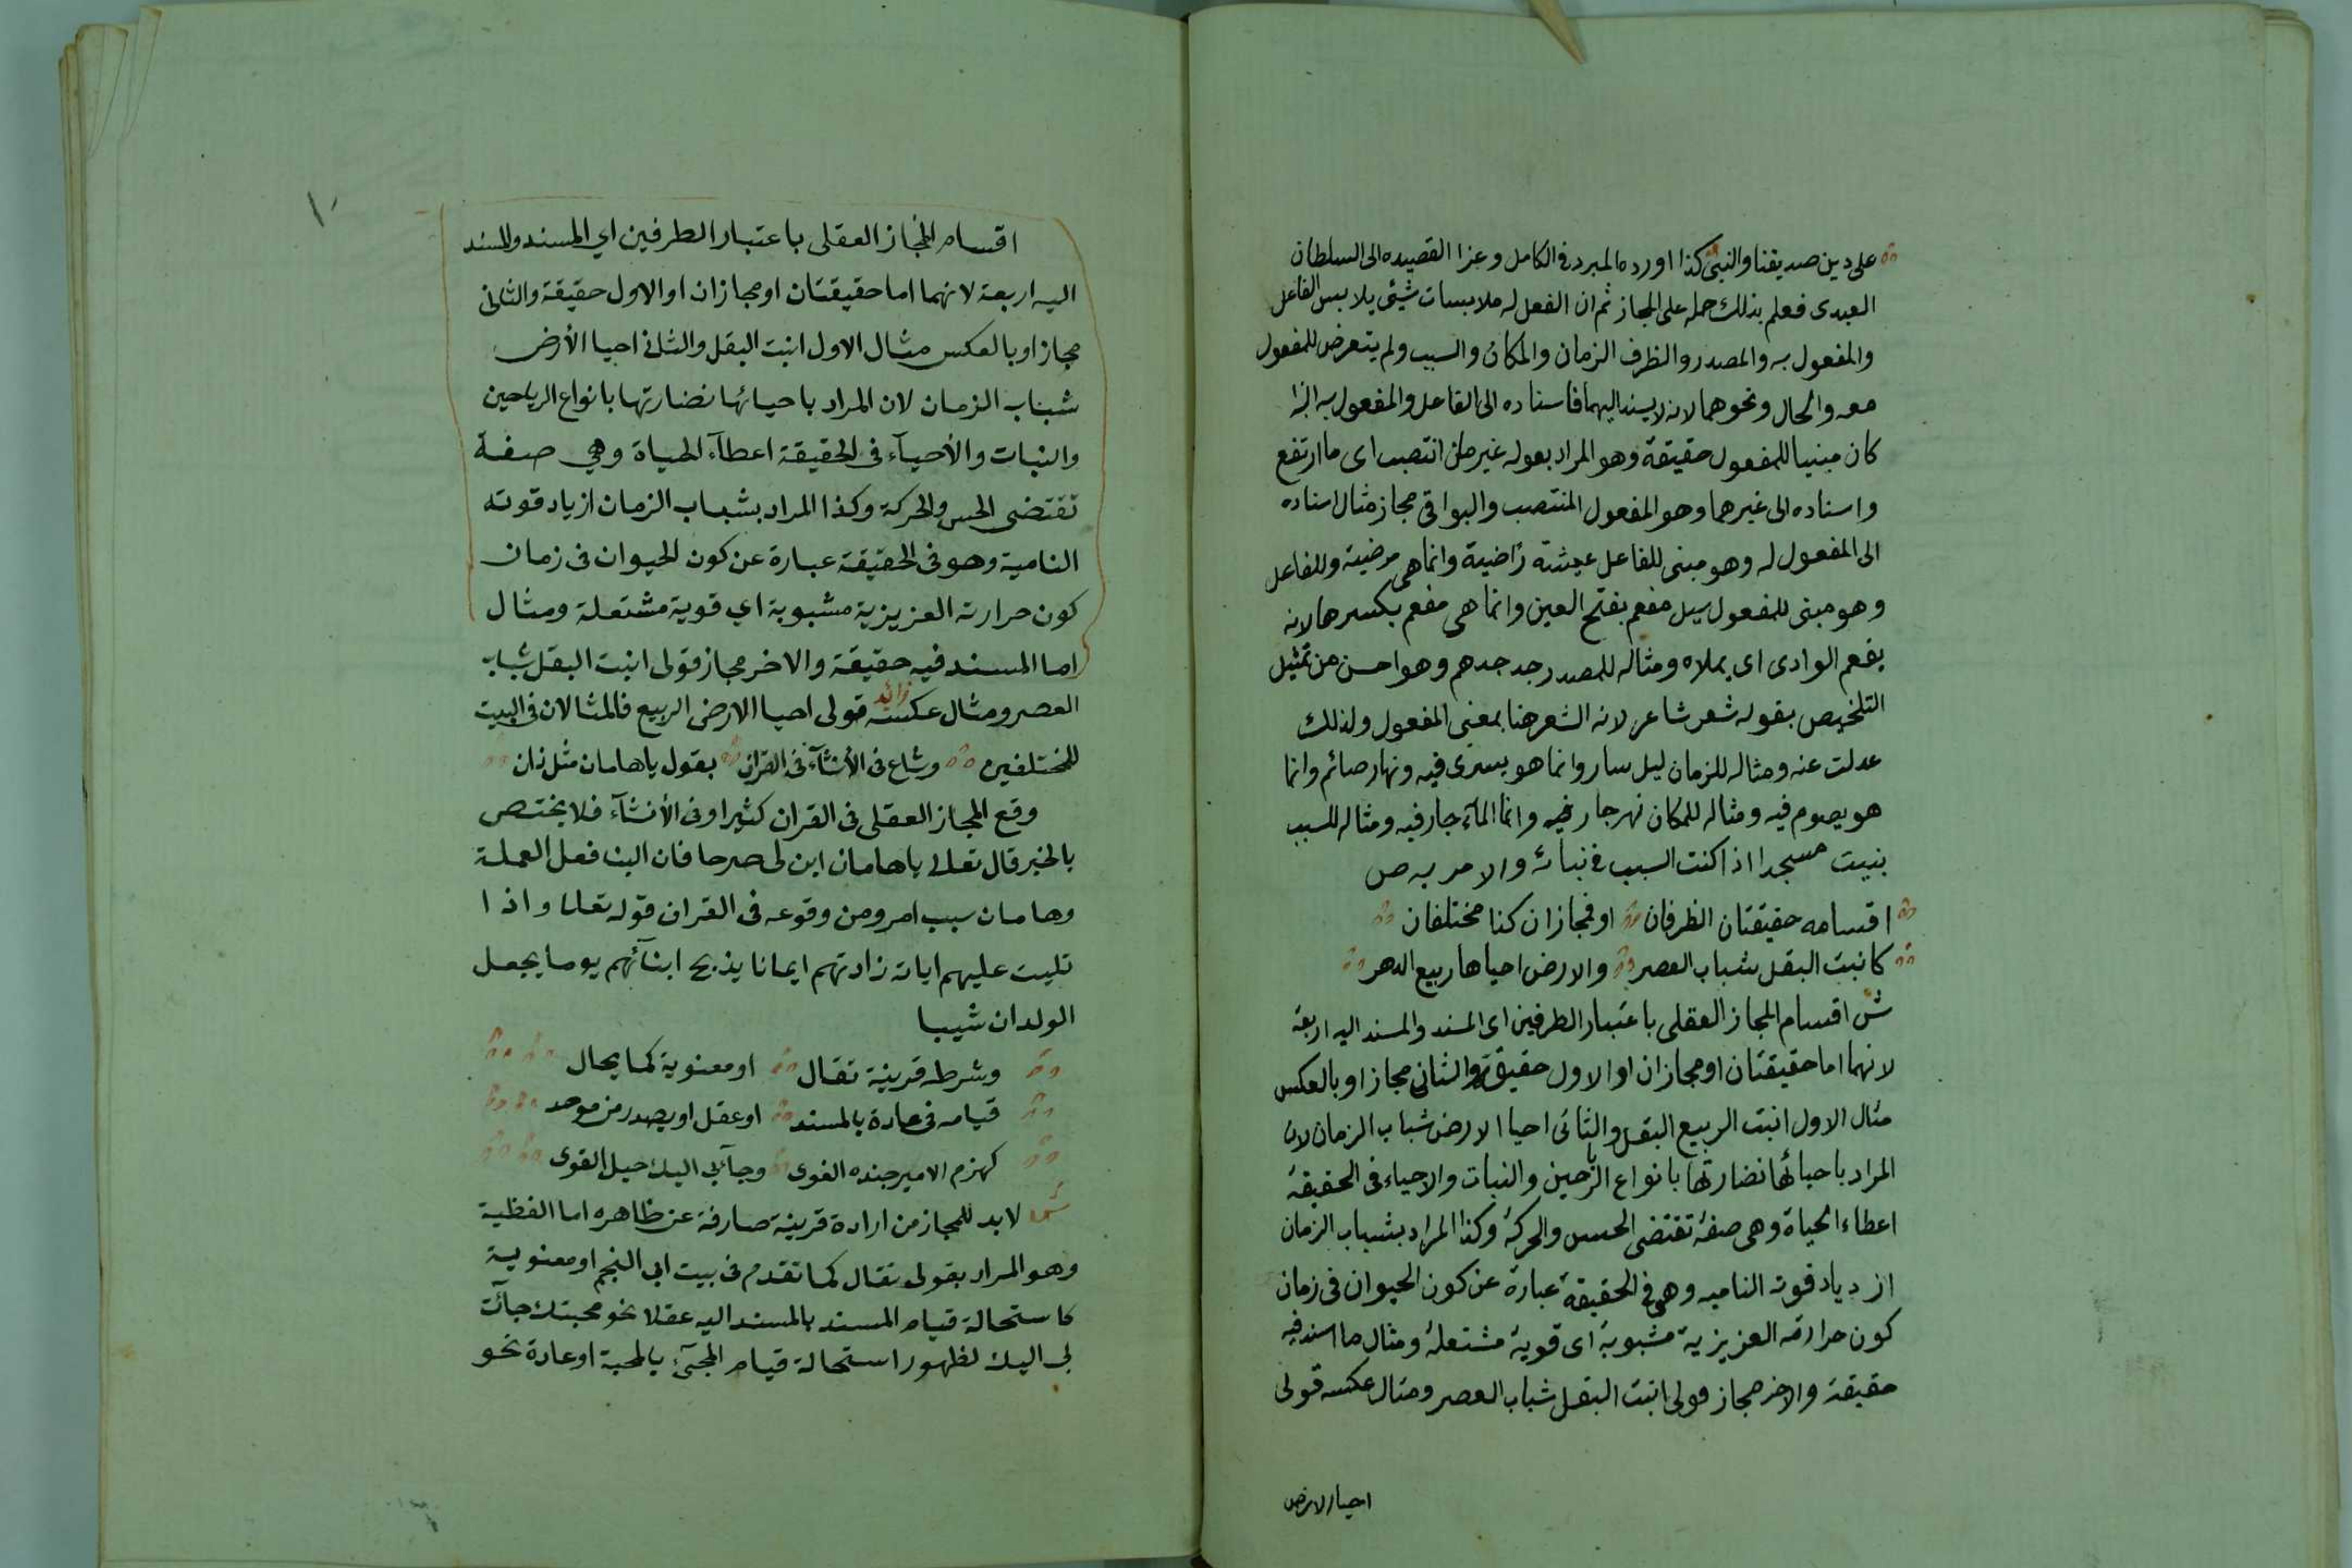 على دين صديقنا والنبي كذا اورده المبرد في الكامل وعزا القصيده الى السلطان
العبدى فعلم بذلك حمله على المجاز ثم ان الفعل له ملابسات شيئى يلابس الفاعل
والمفعول به والمصدر والظرف الزمان والمكان والسبب ولم يتعرض للمفعول
معه والحال ونحوهما لانه لا يسند اليهما فاسناده الى الفاعل والمفعول به اذا
كان مبنيا للمفعول حقيقة وهو المراد بقوله غير ما انتصب اى ما ارتفع
واسناده الى غيرهما وهو المفعول المنتصب والبواقى مجاز مثال اسناده
الى المفعول له وهو مبنى للفاعل عيشة راضية وانما هى مرضية وللفاعل
وهو مبنى للمفعول سيل مفعم بفتح العين وانما هى مفعم بكسرها لانه
يفعم الوادى اى يملاه ومثاله للمصدر جد جدهم وهو احسن من تمثيل
التلخيص بقوله شعر شاعر لانه الشعر هنا بمعنى المفعول ولذلك
عدلت عنه ومثاله للزمان ليل سار وانما هو يسرى فيه ونهار صائم وانما
هو يصوم فيه ومثاله للمكان نهر جار فيه وانما المآء جار فيه ومثاله للسبب
بنيت مسجدا اذا كنت السبب في بنائه والامر به ص
اقسامه حقيقتان الظرفان او فمجازان كذا مختلفان
كانبت البقل شباب العصر والارض احياها ربيع الدهر
ش اقسام المجاز العقلى باعتبار الطرفين اى المسند والمسند اليه اربعة
لانهما اما حقيقتان او مجازان او الاول حقيقة والثانى مجاز او بالعكس
مثال الاول انبت الربيع البقل والثانى احيا الارض شباب الزمان لان
المراد باحيائها نضارتها بانواع الرياحين والنبات والاحياء فى الحقيقة
اعطاء الحياة وهى صفة تقتضى الحس والحركة وكذا المراد بشباب الزمان
ازدياد قوته الناميه وهى في الحقيقة عبارة عن كون الحيوان فى زمان
كون حرارته العزيزية مشبوبة اى قوية مشتعلة ومثال ما اسند فيه
حقيقة والاخر مجاز قولى انبت البقل شباب العصر ومثال عكسه قولى
احيا الارض
١٠
اقسام المجاز العقلى باعتبار الطرفين اي المسند والمسند
اليه اربعة لانهما اما حقيقتان او مجازان او الاول حقيقة والثانى
مجاز او بالعكس مثال الاول انبت البقل والثانى احيا الأرض
شباب الزمان لان المراد باحيائها نضارتها بانواع الرياحين
والنبات والأحيآء فى الحقيقة اعطآء الحياة وهي صفة
تقتضى الحس والحركة وكذا المراد بشباب الزمان ازياد قوته
النامية وهو فى الحقيقة عبارة عن كون الحيوان فى زمان
كون حرارته العزيزية مشبوبة اي قوية مشتعلة ومثال
اما المسند فيه حقيقة والاخر مجاز قولى انبت البقل شباب
العصر ومثال عكسه زائد قولى احيا الارض الربيع فالمثالان فى البيت
للمختلفين وشاع فى الأنشآء فى القرآن بقول ياهامان مثل ذان
وقع المجاز العقلى فى القران كثيرا وفى الأنشآء فلا يختص
بالخبر قال تعالى ياهامان ابن لى صرحا فان البنا فعل العملة
وهامان سبب امر ومن وقوعه فى القران قوله تعالى واذا
تليت عليهم اياته زادتهم ايمانا يذبح ابنآئهم يوما يجعل
الولدان شيبا
وشرطه قرينة تقال او معنوية كما يحال
قيامه فى عادة بالمسند او عقل او يصدر من موحد
كهزم الامير جنده الغوى وجآءبى اليك حيل القوى
ش لابد للمجاز من ارادة قرينة صارفة عن ظاهره اما الفظية
وهو المراد بقولى تقال كما تقدم فى بيت ابى النجم او معنوية
كاستحالة قيام المسند بالمسند اليه عقلا نحو محبتك جآئت
لى اليك لظهور استحالة قيام المجئ بالمحبة او عادة نحو